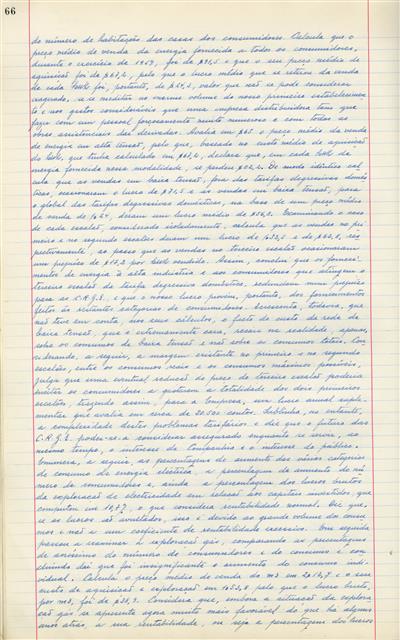 66
do número de habitação das casas dos consumidores. Calcula que o
preço médio de venda da energia fornecida a todos os consumidores,
durante o exercício de 1969, foi de e que o seu preço médio de
aquisição foi de pelo que o lucro médio que se retirou da venda
de cada foi, portanto, de valor que não se pode considerar
exagerado, se se meditar no enorme volume do nosso primeiro estabelecimen-
to e nos gastos consideráveis que uma empresa distribuidora tem que
fazer com um pessoal forçosamente muito numeroso e com todas as
obras assistenciais daí derivadas. Avalia em o preço médio da venda
de energia em alta tensão, pelo que, baseado no custo médio de aquisição
do que tinha calculado em declara que, em cada de
energia fornecida nessa modalidade, se perdem De modo idêntico cal-
cula que as vendas em baixa tensão, fora das tarifas degressivas domés-
ticas, ocasionaram o lucro de e as vendas em baixa tensão, para
o global das tarifas degressivas domésticas, na base de um preço médio
de venda de deram um lucro médio de Examinando o caso
de cada escalão, considerado isoladamente, calcula que as vendas no pri-
meiro e no segundo escalões deram um lucro de e de res-
pectivamente, ao passo que as vendas no terceiro escalão ocasionaram
um prejuízo de por vendido. Assim, conclui que os forneci-
mentos de energia à alta indústria e aos consumidores que atingem o
terceiro escalão da tarifa degressiva doméstica, redundam num prejuízo
para as C.R.G.E. e que o nosso lucro provém, portanto, dos fornecimentos
feitos às restantes categorias de consumidores. Acrescenta, todavia, que
não teve em conta, nos seus cálculos, o facto de o custo da rede de
baixa tensão, que é extremamente cara, recair na realidade, apenas,
sobre os consumos de baixa tensão e não sobre os consumos totais. Con-
siderando, a seguir, a margem existente no primeiro e no segundo
escalões, entre os consumos reais e os consumos máximos possíveis,
julga que uma eventual redução do preço do terceiro escalão poderia
incitar os consumidores a gastarem a totalidade dos dois primeiros
escalões, trazendo assim, para a Empresa, um lucro anual suple-
mentar que avalia em cerca de contos. Sublinha, no entanto,
a complexidade destes problemas tarifários e diz que o futuro das
C.R.G.E. poder-se-á considerar assegurado enquanto se servir, ao
mesmo tempo, o interesse da Companhia e o interesse do público.
Enumera, a seguir, as percentagens de aumento das várias categorias
de consumo de energia eléctrica, a percentagem de aumento do nú-
mero de consumidores e, ainda, a percentagem dos lucros brutos
da exploração de electricidade em relação aos capitais investidos, que
computou em o que considera rentabilidade normal. Diz que,
se os lucros são avultados, isso é devido ao grande volume do consu-
mo e não a um coeficiente de rentabilidade excessivo. Em seguida
passou a examinar a exploração gás, comparando as percentagens
de acréscimo do número de consumidores e do consumo e con-
cluindo daí que foi insignificante o aumento do consumo indi-
vidual. Calcula o preço médio de venda do m3 em e o seu
custo de aquisição e exploração em pelo que o lucro bruto,
por m3, foi de Considera que, embora a situação da explora-
ção gás se apresente agora muito mais favorável do que há alguns
anos atrás, a sua rentabilidade, ou seja a percentagem dos lucros